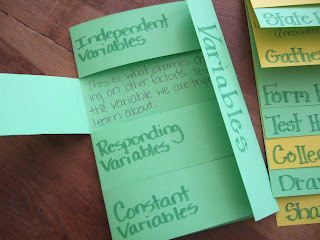 Independent
Variables
This is what changes
ing on other factors. Th
the variable we are try
learn about.
Responding
Variables
Constant
Variables
Variables
State
Gathe
Form
Test H
Colle
Dra
Sha